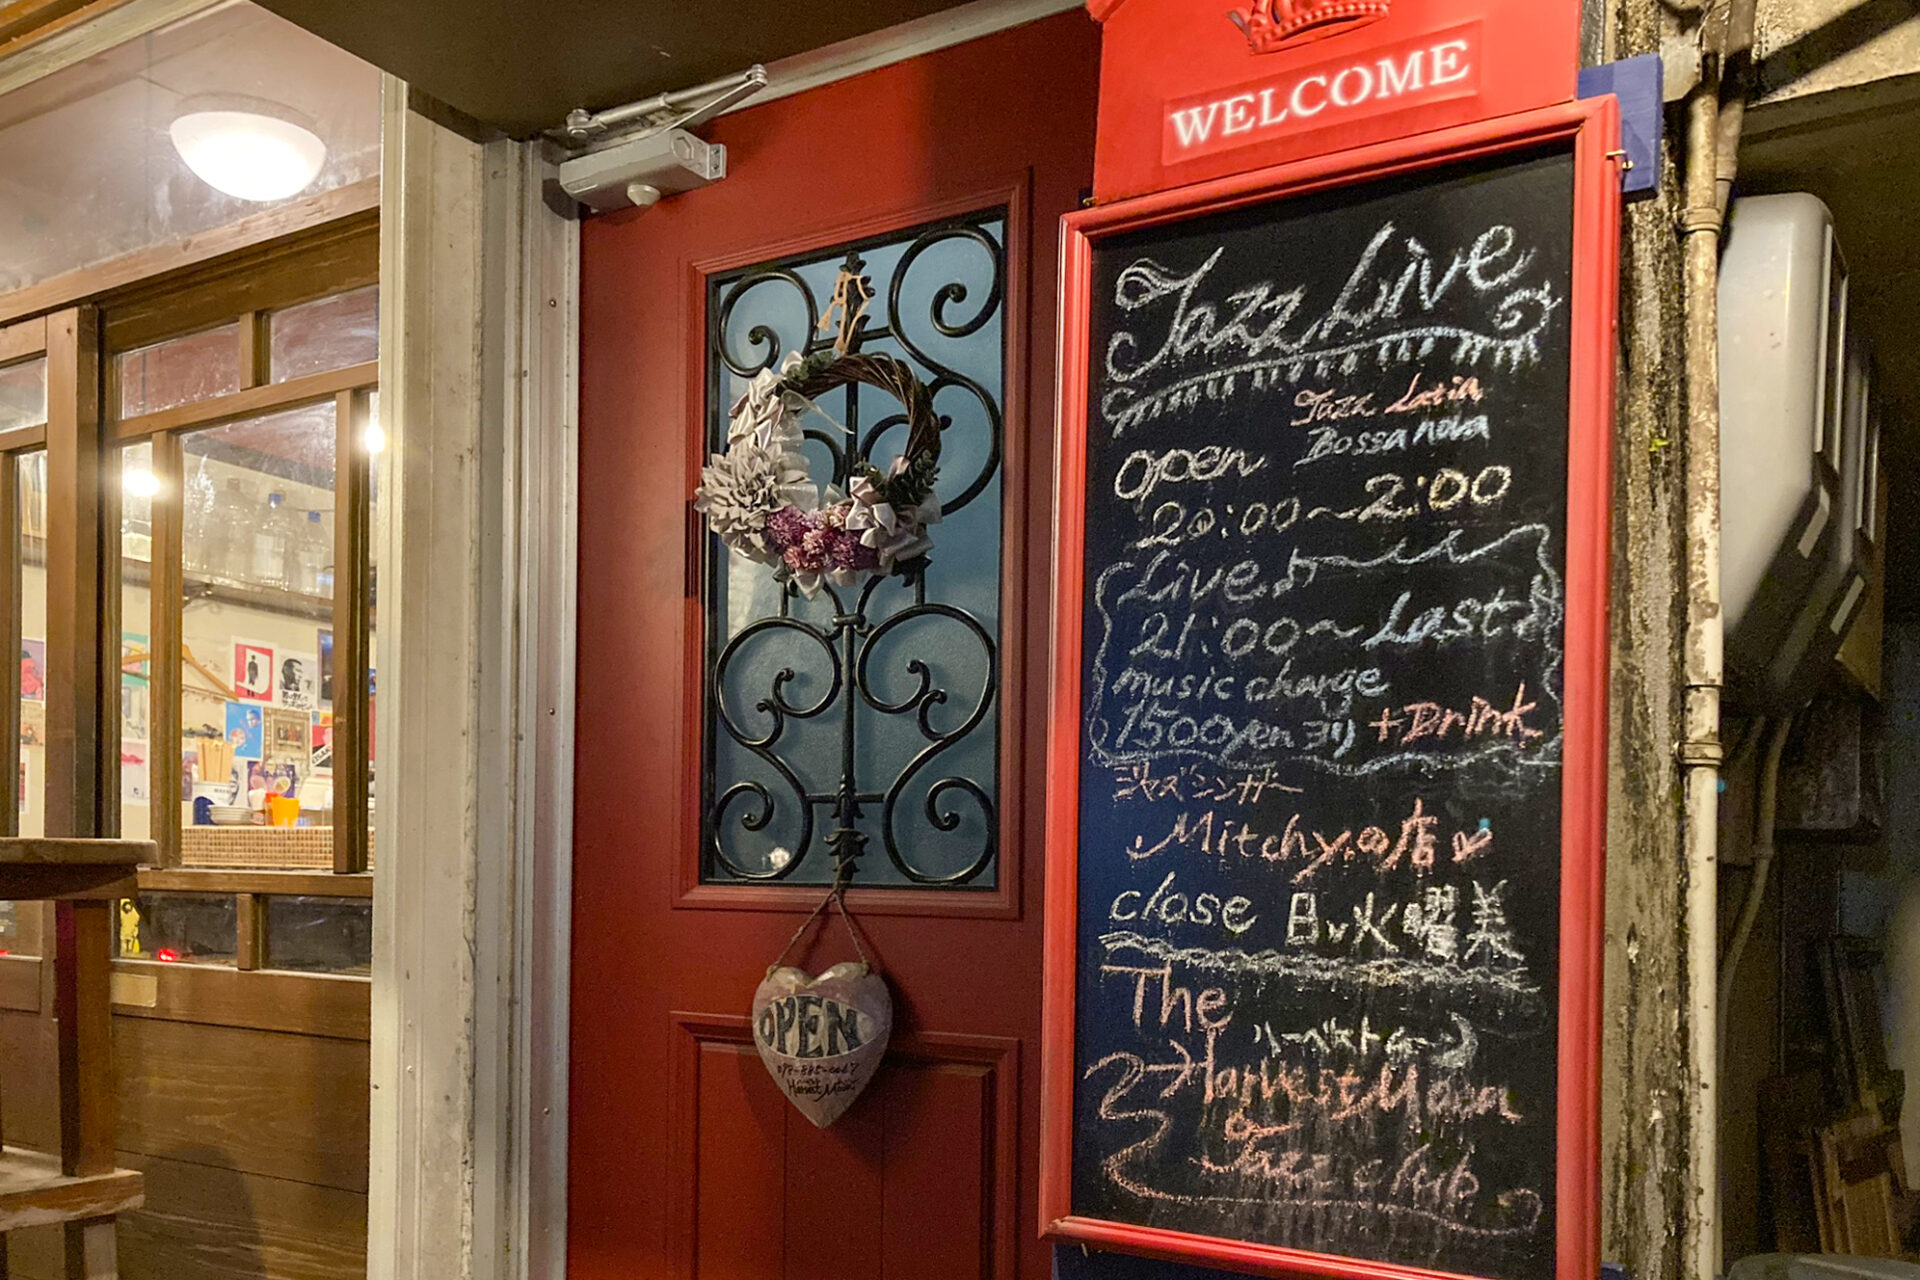 WELCOME
Jazz Live
Jazz Latin
Bossa nova
open
20:00～2:00
Live
21:00～Last
music charge
1500yenヨリ +Drink
ジャズシンガー
Mitchy.の店
close 日、火曜業
The
ハーベストムーン
Harvest Moon
Jazz club
OPEN
Harvest Moon